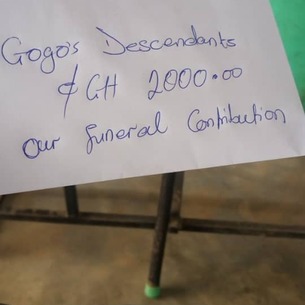 Gogo's Descendants
₵GH 2000.00
Our funeral Contribution